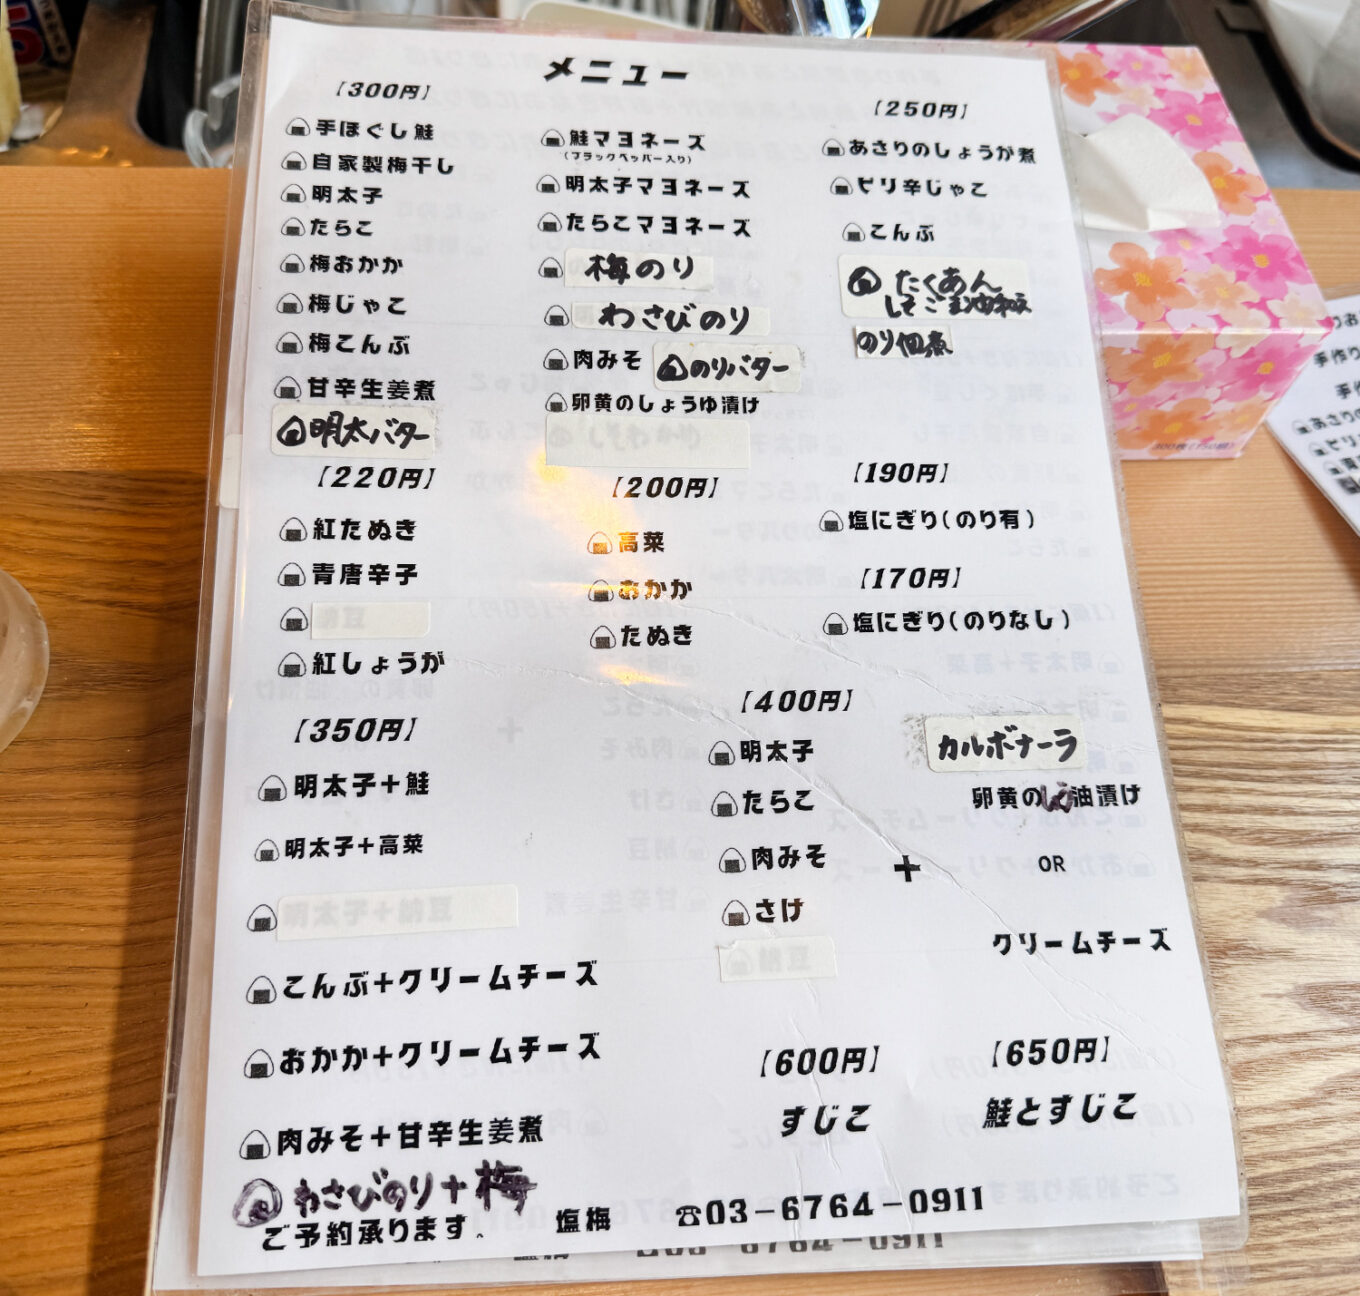 メニュー
【300円】
手ほぐし鮭
自家製梅干し
明太子
たらこ
梅おかか
梅じゃこ
梅こんぶ
甘辛生姜煮
明太バター
鮭マヨネーズ
(ブラックペッパー入り)
明太子マヨネーズ
たらこマヨネーズ
梅のり
わさびのり
肉みそ のりバター
卵黄のしょうゆ漬け
【250円】
あさりのしょうが煮
ピリ辛じゃこ
こんぶ
たくあん
しそごま油和え
のり佃煮
【220円】
紅たぬき
青唐辛子
納豆
紅しょうが
【200円】
高菜
おかか
たぬき
【190円】
塩にぎり(のり有)
【170円】
塩にぎり(のりなし)
【350円】
明太子+鮭
明太子+高菜
明太子+納豆
こんぶ+クリームチーズ
おかか+クリームチーズ
肉みそ+甘辛生姜煮
わさびのり+梅
【400円】
明太子
たらこ
肉みそ
さけ
納豆
+
カルボナーラ
卵黄のしょう油漬け
OR
クリームチーズ
【600円】
すじこ
【650円】
鮭とすじこ
ご予約承ります。 塩梅 ☎03-6764-0911